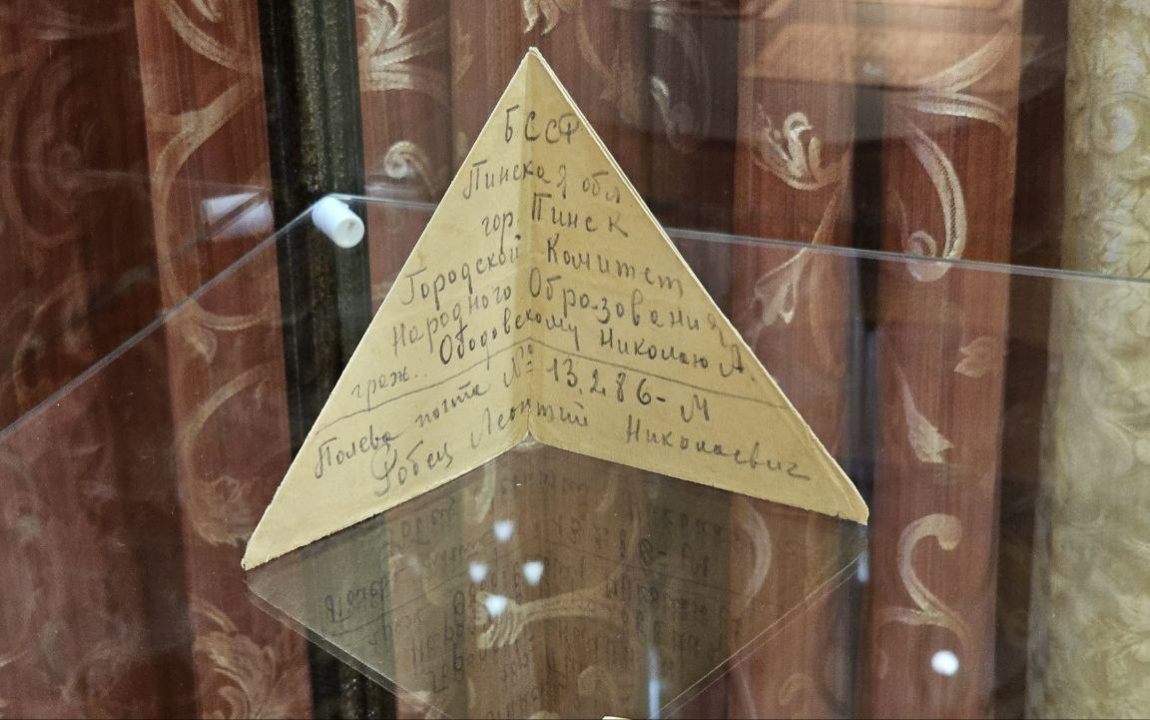 БССР
Пинская обл
гор. Пинск
Городской Комитет
Народного Образования
граж. Ободовскому Николаю А.
Полева почта № 13.286-М
Робец Леонтий Николаевич